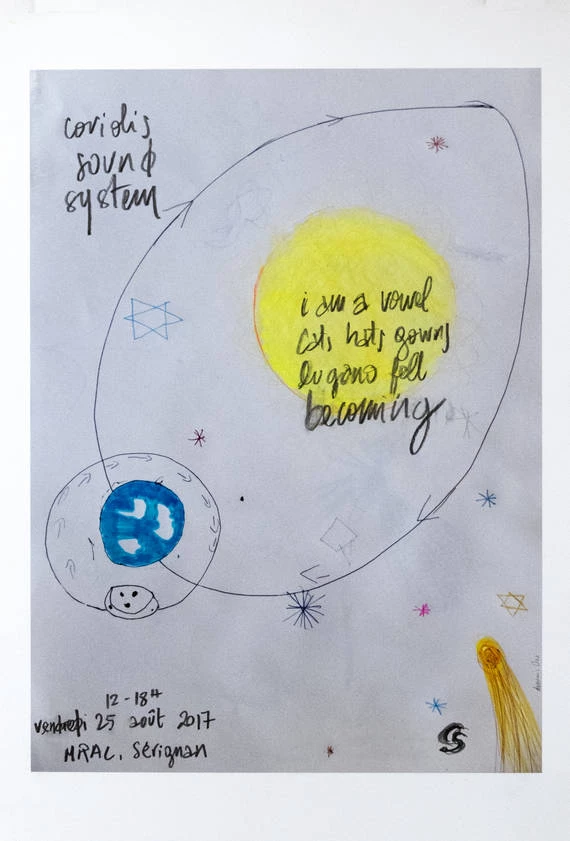 coriolis
sound
system
i am a vowel
cats hats gowns
lugano fell
becoming
12-18H
vendredi 25 août 2017
MRAC, Sérignan